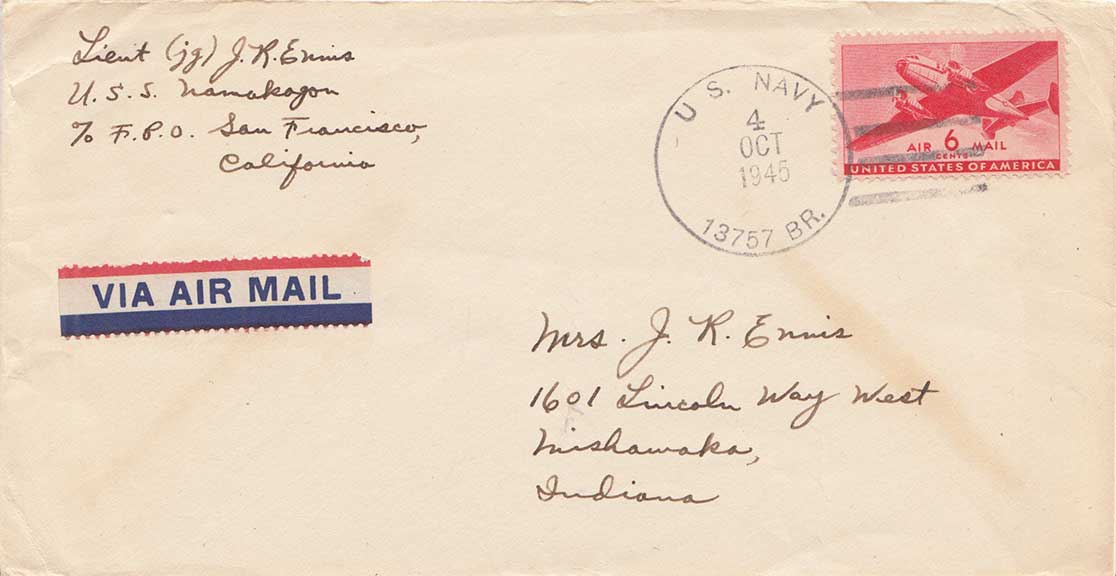 Lieut (jg) J. R. Ennis
U. S. S. Namakagon
℅ F.P.O. San Francisco,
California
U. S. NAVY
4
OCT
1945
13757 BR.
AIR 6 MAIL
CENTS
UNITED STATES OF AMERICA
VIA AIR MAIL
Mrs. J. R. Ennis
1601 Lincoln Way West
Mishawaka,
Indiana